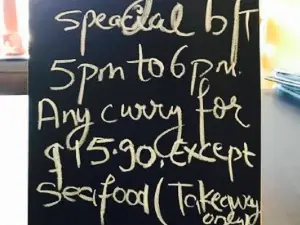 speacial b/T
5pm to 6pm.
Any curry for
$15.90, Except
seafood (Takeaway
only)